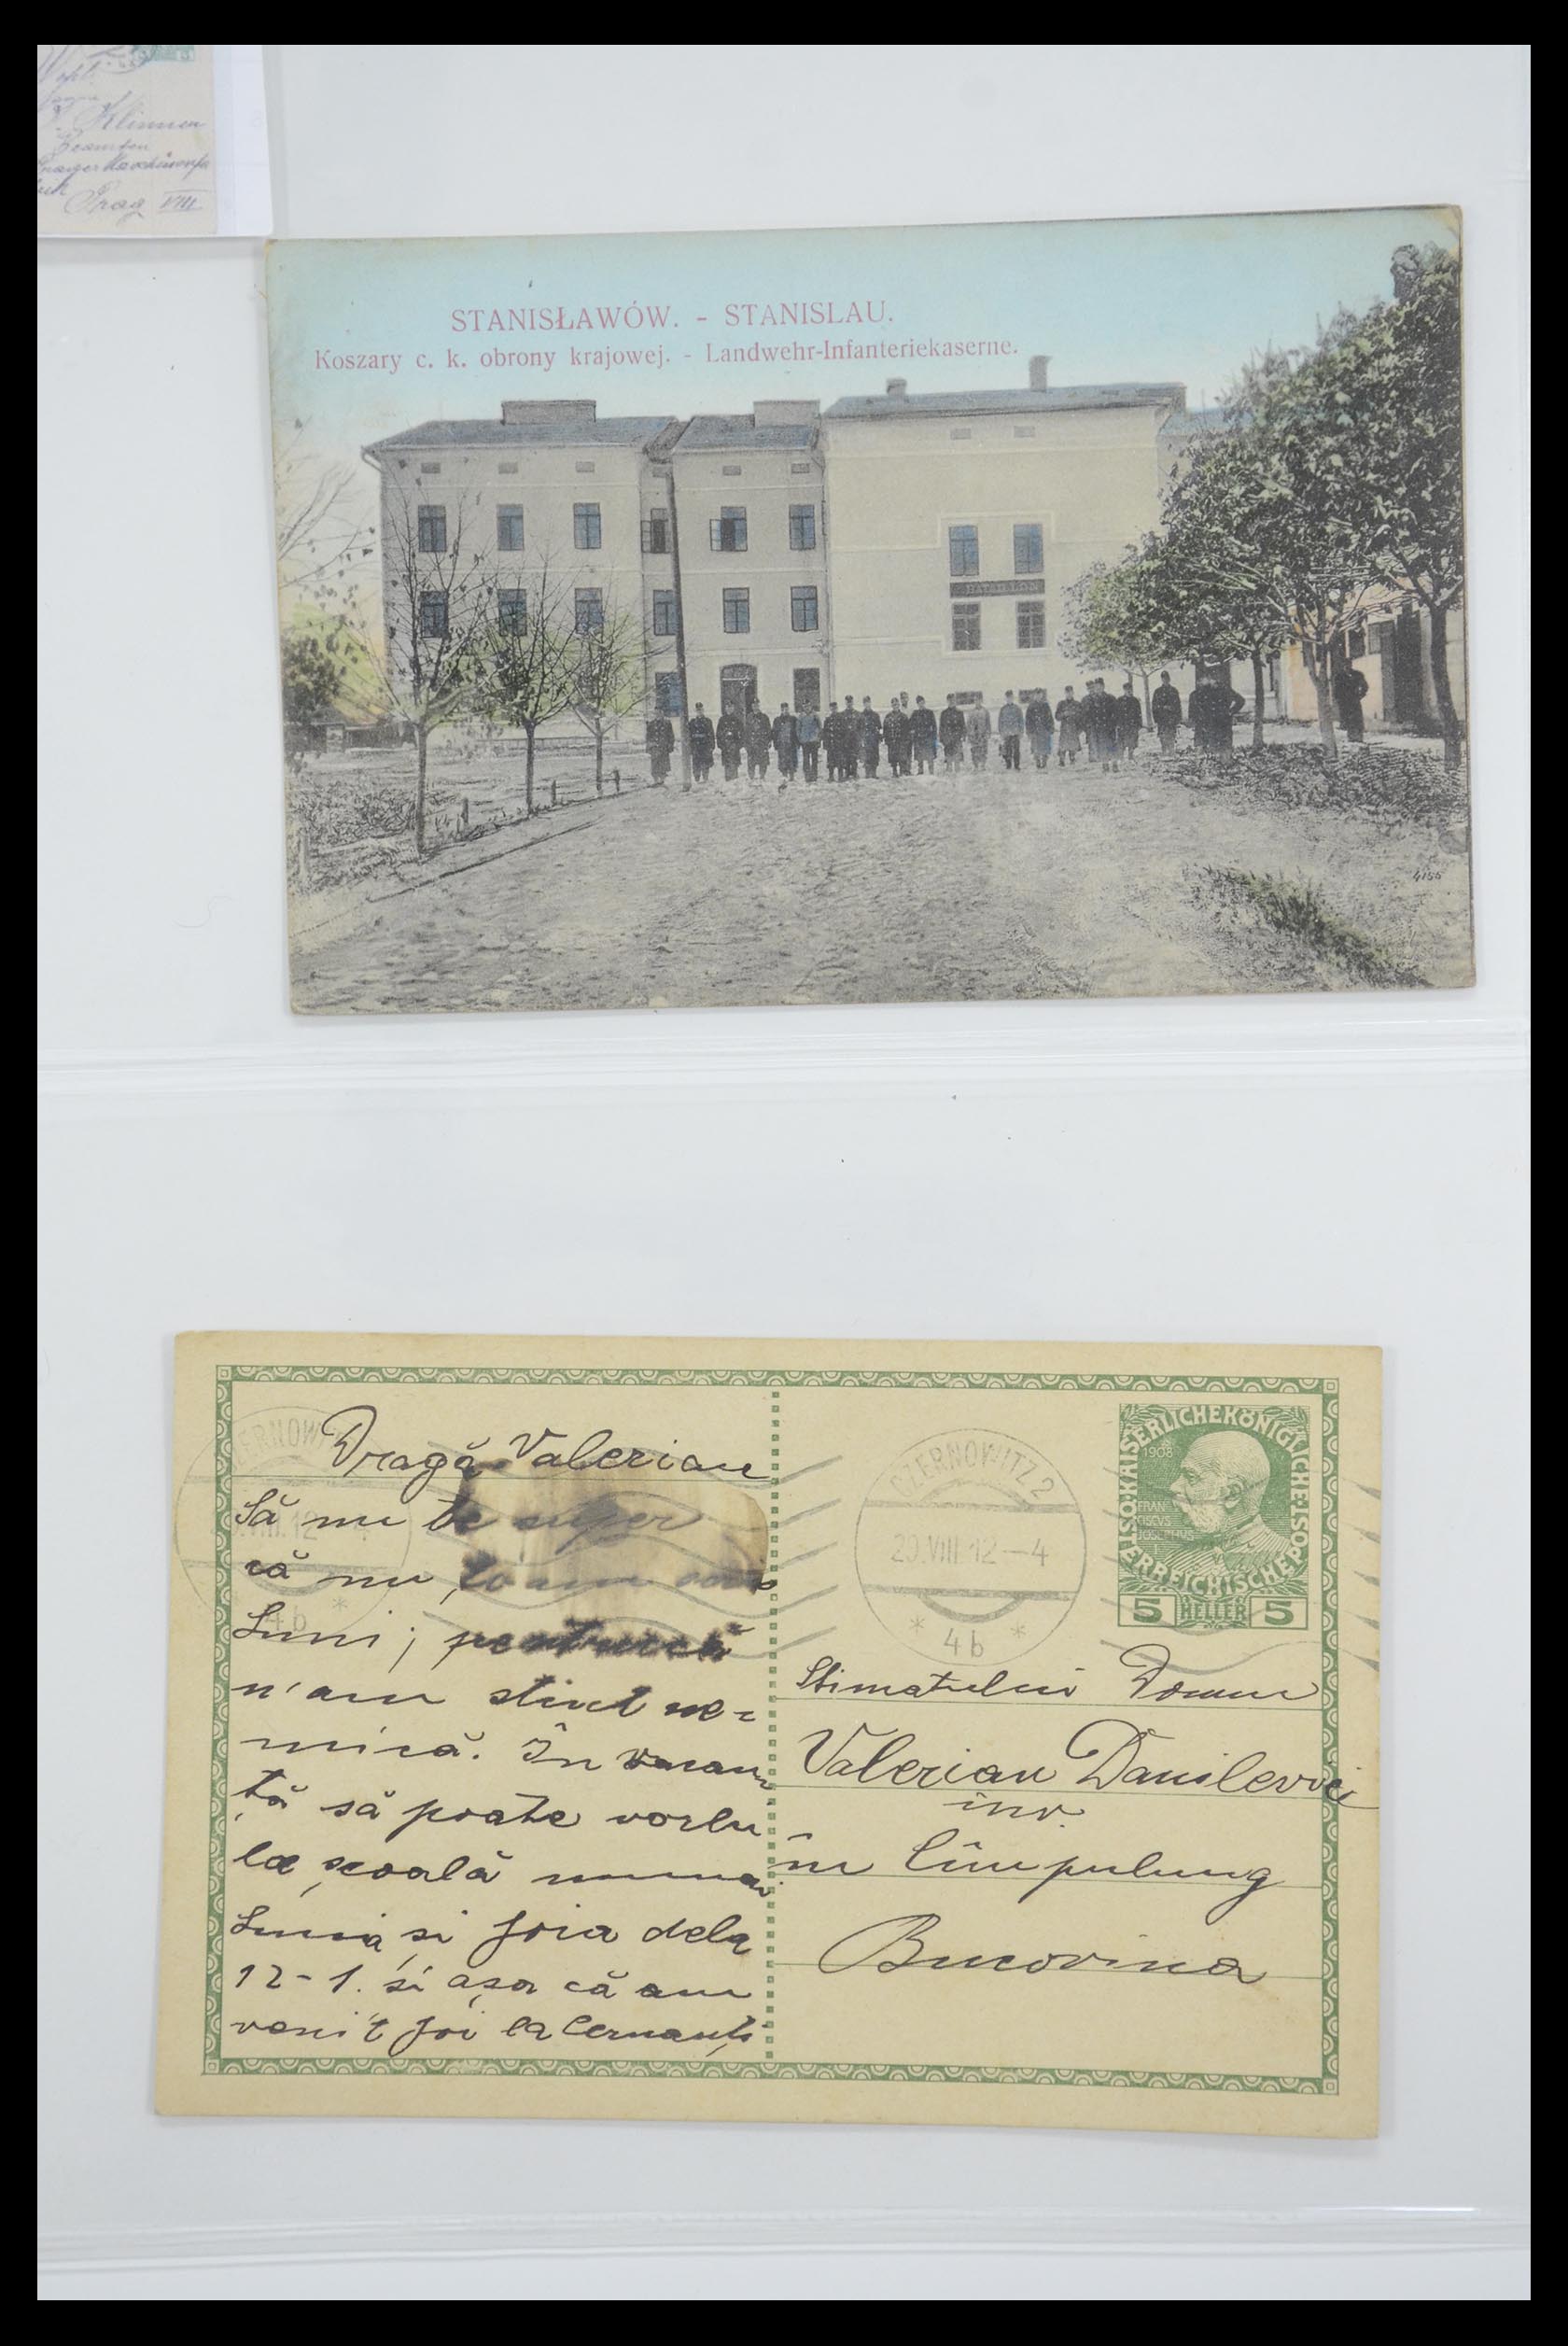 F. Klimmer
Beamten
Prag VIII
STANISŁAWÓW. - STANISLAU.
Koszary c. k. obrony krajowej. - Landwehr-Infanteriekaserne.
BATAILLON
4155
CZERNOWITZ
VIII.12
4b *
Dragă Valerian
Să nu te super
că nu ţ'o am
Luni; pentrucă
n'am stiut ne=
mică. În vacan
ţă să poate vorbi
la şcoală numai
Lunia şi Joia dela
12-1. şi aşa că am
venit Joi la Cernauţi
CZERNOWITZ 2
29.VIII.12-4
* 4b *
KAISERLICHE KÖNIGLICHE POST
1908
FRAN
CISCVS
JOSEPHVS
ÖSTERREICHISCHE
5 HELLER 5
Stimatului Domn
Valerian Danilevici
inv.
în Cîmpulung
Bucovina